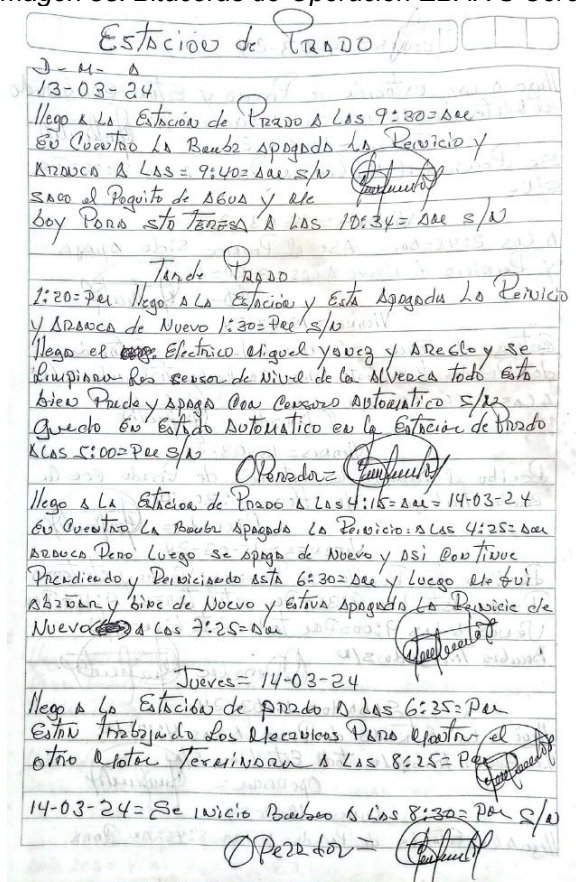 Estacion de Prado
D-M-A
13-03-24
llego A LA Estacion de Prado A LAS 9:30= AM
EN Cuentro LA Bomba Apagada LA Reinicio y
Arranca A LAS = 9:40= AM s/N
saco el Poquito de AGUA y Me
boy Para sta Teresa A LAS 10:34= AM s/N
Tarde Prado
1:20= PM llego A LA Estacion y Esta Apagada La Reinicio
y Arranca de Nuevo 1:30= PM s/N
llego el Electrico Miguel yanez y Areglo y se
Limpiaron Los sensor de Nivel de la Alverca todo Esta
bien Prende y Apaga Con Censoro Automatico s/N
Quedo EN Estado Automatico en la Estacion de Prado
A LAS 5:00= PM s/N
Operador=
llego A LA Estacion de Prado A LAS 4:15= AM = 14-03-24
EN Cuentro LA Bomba Apagada LA Reinicio: A LAS 4:25= AM
Arranca Pero Luego se Apaga de Nuevo y Asi Continue
Prendiendo y Reiniciando Asta 6:30= AM y Luego Me fui
y bine de Nuevo y Estava Apagada La Reinicie de
Nuevo A LAS 7:25= AM
Jueves= 14-03-24
llego A LA Estacion de Prado A LAS 6:35= PM
Estan Trabajado Los Mecanicos Para Montar el
otro Motor Terminaron A LAS 8:25= PM
14-03-24= Se inicio Bombeo A LAS 8:30= PM s/N
Operador=